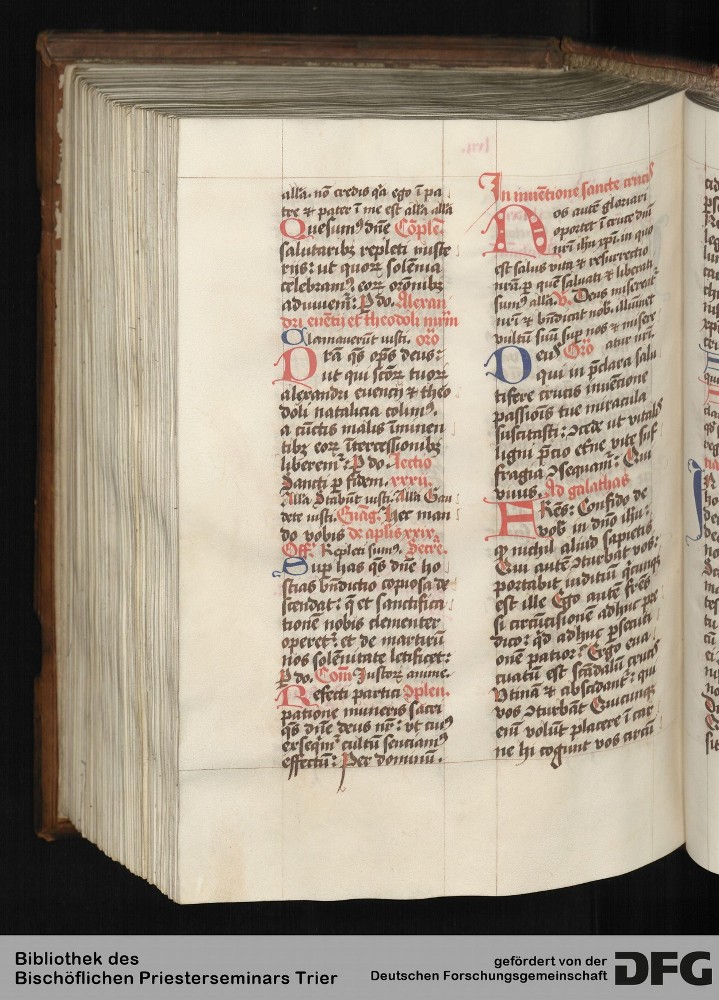 alla. nō credis q̄a ego ī pa
tre ⁊ pater ī me est alla alla
Quesumꝰ dn̄e Cōple.
salutaribꝫ repleti miste
riis: ut quoꝝ solēnia
celebramꝰ. eoꝝ orōnibꝫ
adiuuem̄: P do. Alexan
dri euētij et theodoli mr̄m
Clamauerūt iusti. orō
Prā q̄s op̄s deus:
ut qui scōꝝ tuoꝝ
alexandri euencij ⁊ theo
doli natalicia colimꝰ.
a cūctis malis īminen
tibꝫ eoꝝ ītercessionibꝫ
liberem̄: P do. lectio
Sancti p fidem. xxxij.
Alla Stabūt iusti. Alla Gau
dete iusti. Ewāg. Hec man
do vobis de apl̄is xxix.
Off. Repleti sumꝰ. Secre.
Sup has q̄s dn̄e ho
stias bn̄dictio copiosa de
scendat: q̄ et sanctifica
tionē nobis clementer
operet̄: et de martirū
nos solēnitate letificet:
P do. Com̄ Iustoꝝ anime.
Refecti partici Cplen.
patione muneris sacri
q̄s dn̄e deus nr̄: ut cuiꝰ
exseq̄m̄ cultū senciamꝰ
effectū: Per dominū.
lvij.
In inuētione sancte crucis
Nos autē gloriari
oportet ī cruce dn̄i
nr̄i ih̄u xp̄i. in quo
est salus vita ⁊ resurrectio
nr̄a. p quē saluati ⁊ liberati
sumꝰ alla. V. Deus misereat̄
nr̄i ⁊ bn̄dicat nob. illuminet
vultū suū sup nos ⁊ misere
Deus Orō atur nr̄i.
qui in p̄clara salu
tifere crucis inuētione
passiōis tue miracula
suscitasti: ꝯcede ut vitalis
ligni p̄cio et̄ne vite suf
fragia ꝯsequam̄: Qui
viuis. Ad galathas
Fr̄es: Confido de
vob in dn̄o ih̄u:
q̄ nichil aliud sapietis
Qui autē ꝯturbat vos:
portabit iuditiū q̄cunqꝫ
est ille Ego autē fr̄es
si circūcisionē adhuc pre
dico: q̄d adhuc psecuti
onē patior: Ergo eua
cuatū est scādalū crucis
Vtinā ⁊ abscidant̄: qui
vos ꝯturbāt Quicunqꝫ
enī volūt placere ī car
ne hi cogunt vos circū
Bibliothek des
Bischöflichen Priesterseminars Trier
gefördert von der
Deutschen Forschungsgemeinschaft
DFG